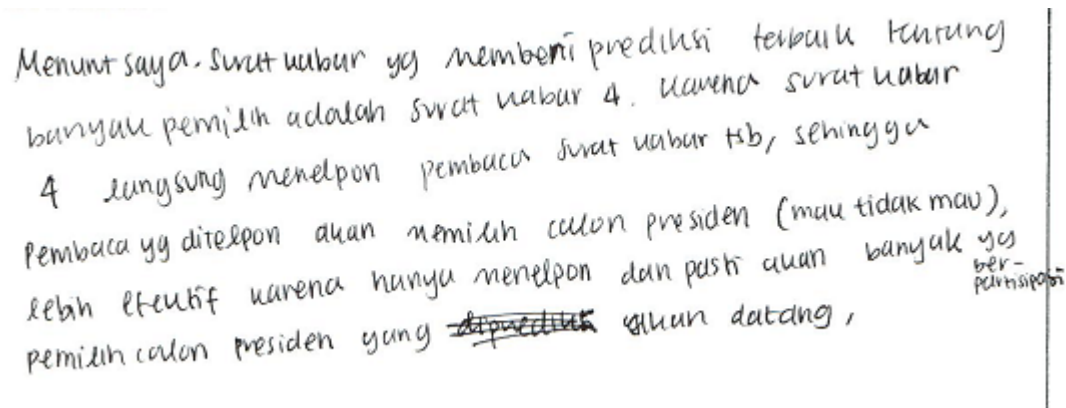 Menurut saya. Surat kabar yg memberi prediksi terbaik tentang
banyak pemilih adalah surat kabar 4. Karena surat kabar
4 langsung menelpon pembaca surat kabar tsb, sehingga
Pembaca yg ditelpon akan memilih calon presiden (mau tidak mau),
lebih efektif karena hanya menelpon dan pasti akan banyak yg ber-partisipasi
pemilih calon presiden yang akan datang,